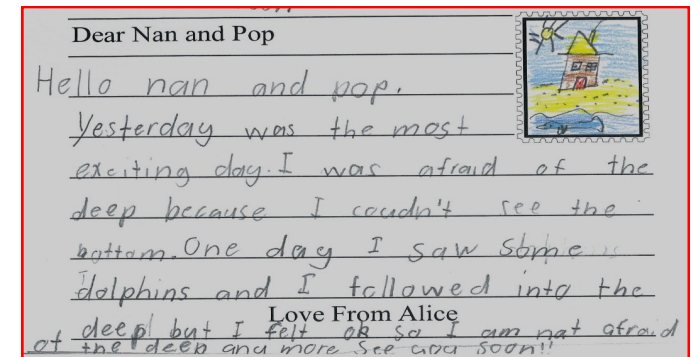 Dear Nan and Pop
Hello nan and pop.
Yesterday was the most
exciting day. I was afraid of the
deep because I coudn't see the
bottom. One day I saw some
dolphins and I followed into the
Love From Alice
deep but I felt ok so I am not afraid
of the deep any more see you soon!!